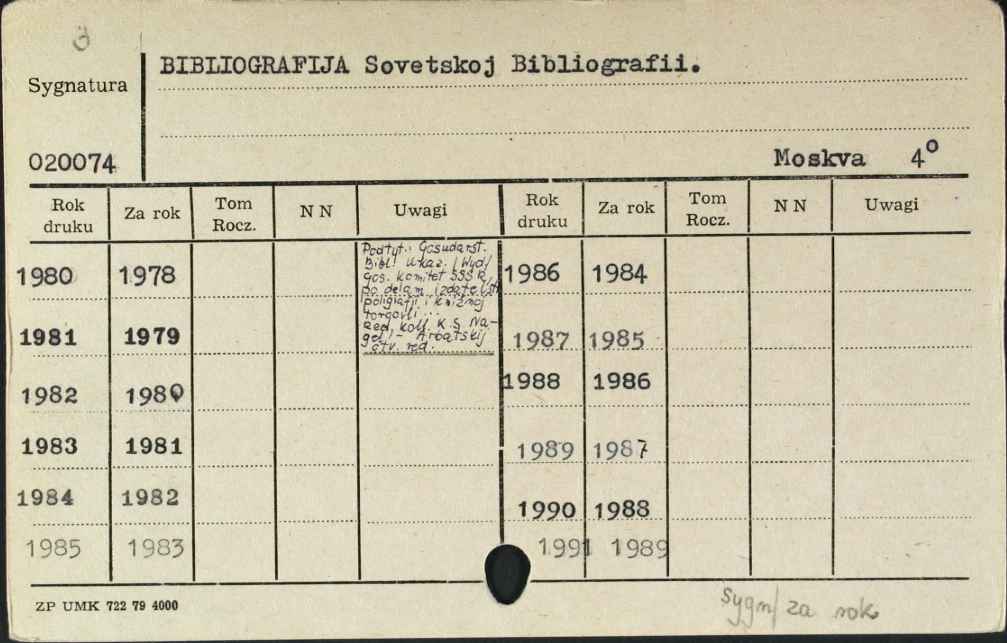 3
BIBLIOGRAFIJA Sovetskoj Bibliografii.
Sygnatura
020074
Moskva 4°
Rok druku Za rok Tom Rocz. N N Uwagi Rok druku Za rok Tom Rocz. N N Uwagi
Podtyt.: Gosudarst.
Bibl. Ukaz. /Wyd/
Gos. Komitet SSSR
po delam izdatelstv
poligrafii i knižnoj
torgovli...
Red. koll. K.S. Na-
gel' - Arbatskij
otv. red.
1980 1978 1986 1984
1981 1979 1987 1985
1982 1980 1988 1986
1983 1981 1989 1987
1984 1982 1990 1988
1985 1983 1991 1989
ZP UMK 722 79 4000
Sygn/ za rok